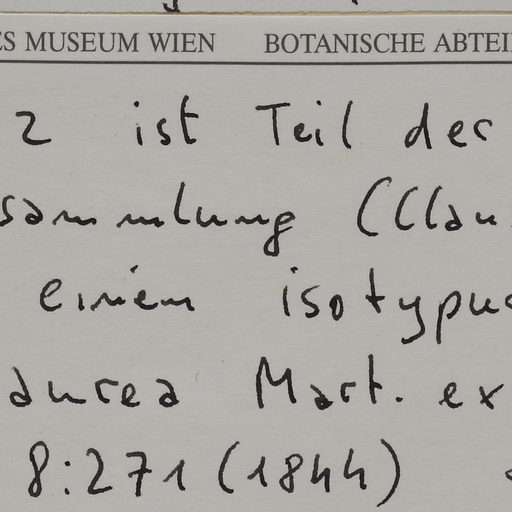 ES MUSEUM WIEN BOTANISCHE ABTEI
2 ist Teil der
sammlung (Clau
einem isotypus
aurea Mart. ex
8:271 (1844)